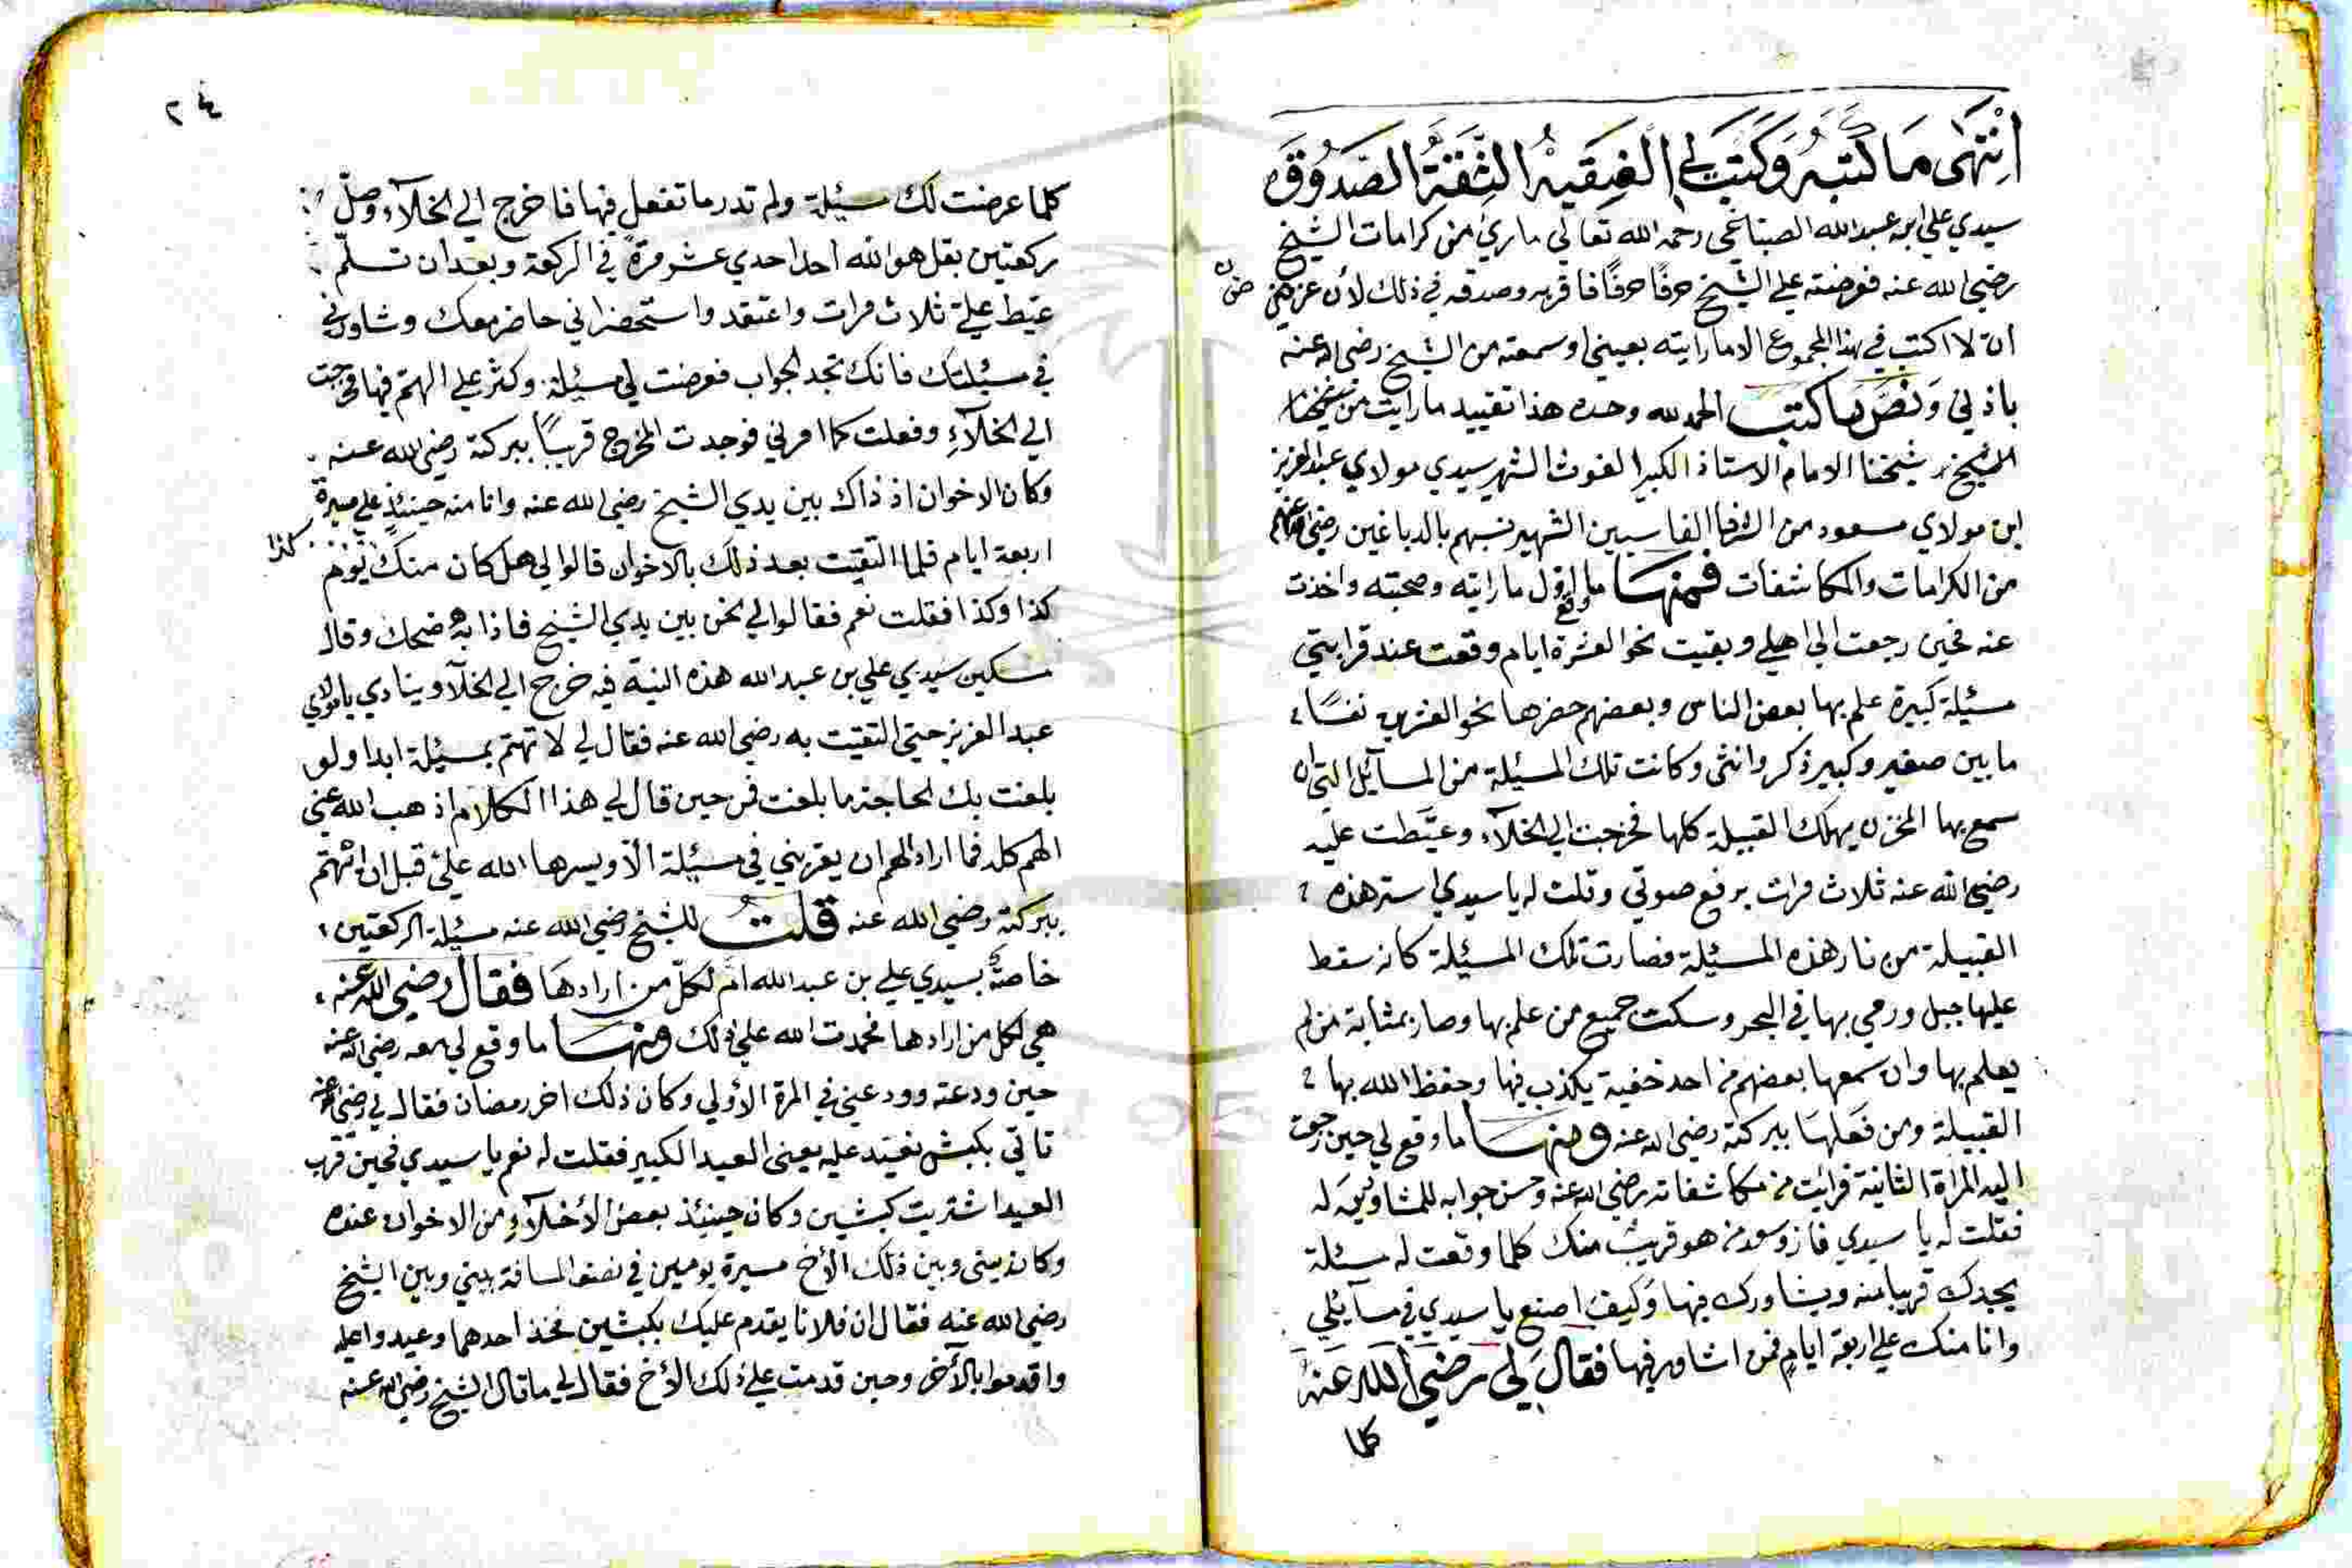 انتهى ما كتبه وكتب لي الفقيه الثقة الصدوق
سيدي علي ابن عبد الله الصباغي رحمه الله تعالي ما رءي من كرامات الشيخ
رضي الله عنه فعرضته علي الشيخ حرفًا حرفًا فاقر به وصدقه في ذلك لأن غرضي
ان لا اكتب في هذا المجموع الا ما رايته بعيني او سمعته من الشيخ رضي الله عنه
باذني ونص ما كتب الحمد لله وحده هذا تقييد ما رايت من
الشيخ شيخنا الامام الاستاذ الكبير الغوث الشهير سيدي مولاي عبد العزيز
ابن مولاي مسعود من الشرفا الفاسيين الشهير نسبهم بالدباغين رضي الله عنهم
من الكرامات والمكاشفات فمنها ما وقع اول ما رايته وصحبته واخذت
عنه فحين رجعت الي اهلي وبقيت نحو العشرة ايام وقعت عند قرابتي
مسئيلة كبيرة علم بها بعض الناس وبعضهم حضرها نحو العشرين نفسًا
ما بين صغير وكبير ذكر وانثى وكانت تلك المسئيلة من المسآئل التي ان
سمع بها المخزن يهلك القبيلة كلها فخرجت الي الخلآء وعيَّطت عليه
رضي الله عنه ثلاث مرات برفع صوتي وقلت له يا سيدي استر هذه
القبيلة من نار هذه المسئيلة فصارت تلك المسئيلة كانه سقط
عليها جبل ورمي بها في البحر وسكت جميع من علم بها وصار بمثابة من لم
يعلم بها وان سمعها بعضهم من احد خفية يكذب فيها وحفظ الله بها
القبيلة ومن فعلها ببركته رضي الله عنه ومنها ما وقع لي حين رجعت
اليه المراة الثانية فرايت من مكاشفاته رضي الله عنه وحسن جوابه للمشاورين له
فقلت له يا سيدي فاز وسعد من هو قريب منك كلما وقعت له مسئلة
يجدك قريبا منه ويشاورك فيها وكيف اصنع يا سيدي في مسآئلي
وانا منك علي اربعة ايام فمن اشاور فيها فقال لي رضي الله عنه
كلما
كلما عرضت لك مسئيلة ولم تدر ما تفعل فيها فاخرج الي الخلآء وصلّ
ركعتين بقل هو الله احد احدي عشر مرةً في الركعة وبعد ان تسلّم
عيّط عليّ ثلاث مرات واعتقد واستحضر اني حاضر معك وشاورني
في مسئيلتك فانك تجد الجواب فعرضت لي مسئيلة وكثر علي الهمّ فيها فخرجت
الي الخلآءِ وفعلت كما امرني فوجدت المخرج قريبًا ببركته رضي الله عنه
وكان الاخوان اذ ذاك بين يدي الشيخ رضي الله عنه وانا منه حينئذٍ علي مسيرة
اربعة ايام فلما التقيت بعد ذلك بالاخوان قالوا لي هل كان منك يوم
كذا
كذا وكذا فقلت نعم فقالوا لي نحن بين يدي الشيخ فاذا به ضحك وقال
مسكين سيدي علي بن عبد الله هذه النية فيه خرج الي الخلآ وينادي يا مولاي
عبد العزيز حتي التقيت به رضي الله عنه فقال لي لا تهتم بمسئيلة ابدا ولو
بلغت بك الحاجة ما بلغت فمن حين قال لي هذا الكلام اذهب الله عني
الهم كله فما اراد الهم ان يغريني في مسئيلة الّا ويسرها الله عليّ قبل ان اهتم
ببركته رضي الله عنه قلتُ للشيخ رضي الله عنه مسئيلة الركعتين
خاصة بسيدي علي بن عبد الله ام لكلّ من ارادها فقال رضي الله عنه
هي لكل من ارادها فحمدت الله علي ذلك ومنها ما وقع لي معه رضي الله عنه
حين ودعته وودعني في المرة الأولي وكان ذلك اخر رمضان فقال لي رضي الله عنه
تاتي بكبش نعيّد عليه يعني العيد الكبير فقلت له نعم يا سيدي فحين قرب
العيد اشتريت كبشين وكان حينئذ بعض الأخلآءِ من الاخوان عنده
وكان بيني وبين ذلك الأخ مسيرة يومين في نصف المسافة بيني وبين الشيخ
رضي الله عنه فقال ان فلانا يقدم عليك بكبشين فخذ احدهما وعيد واعليه
واقدموا بالآخر وحين قدمت علي ذلك الأخ فقال لي ما قال الشيخ رضي الله عنه